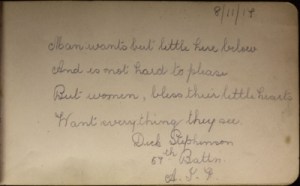 8/11/17.
Man wants but little here below
And is not hard to please
But women, bless their little hearts
Want everything they see.
Dick Stephinson
57th Battn.
A. I. F.